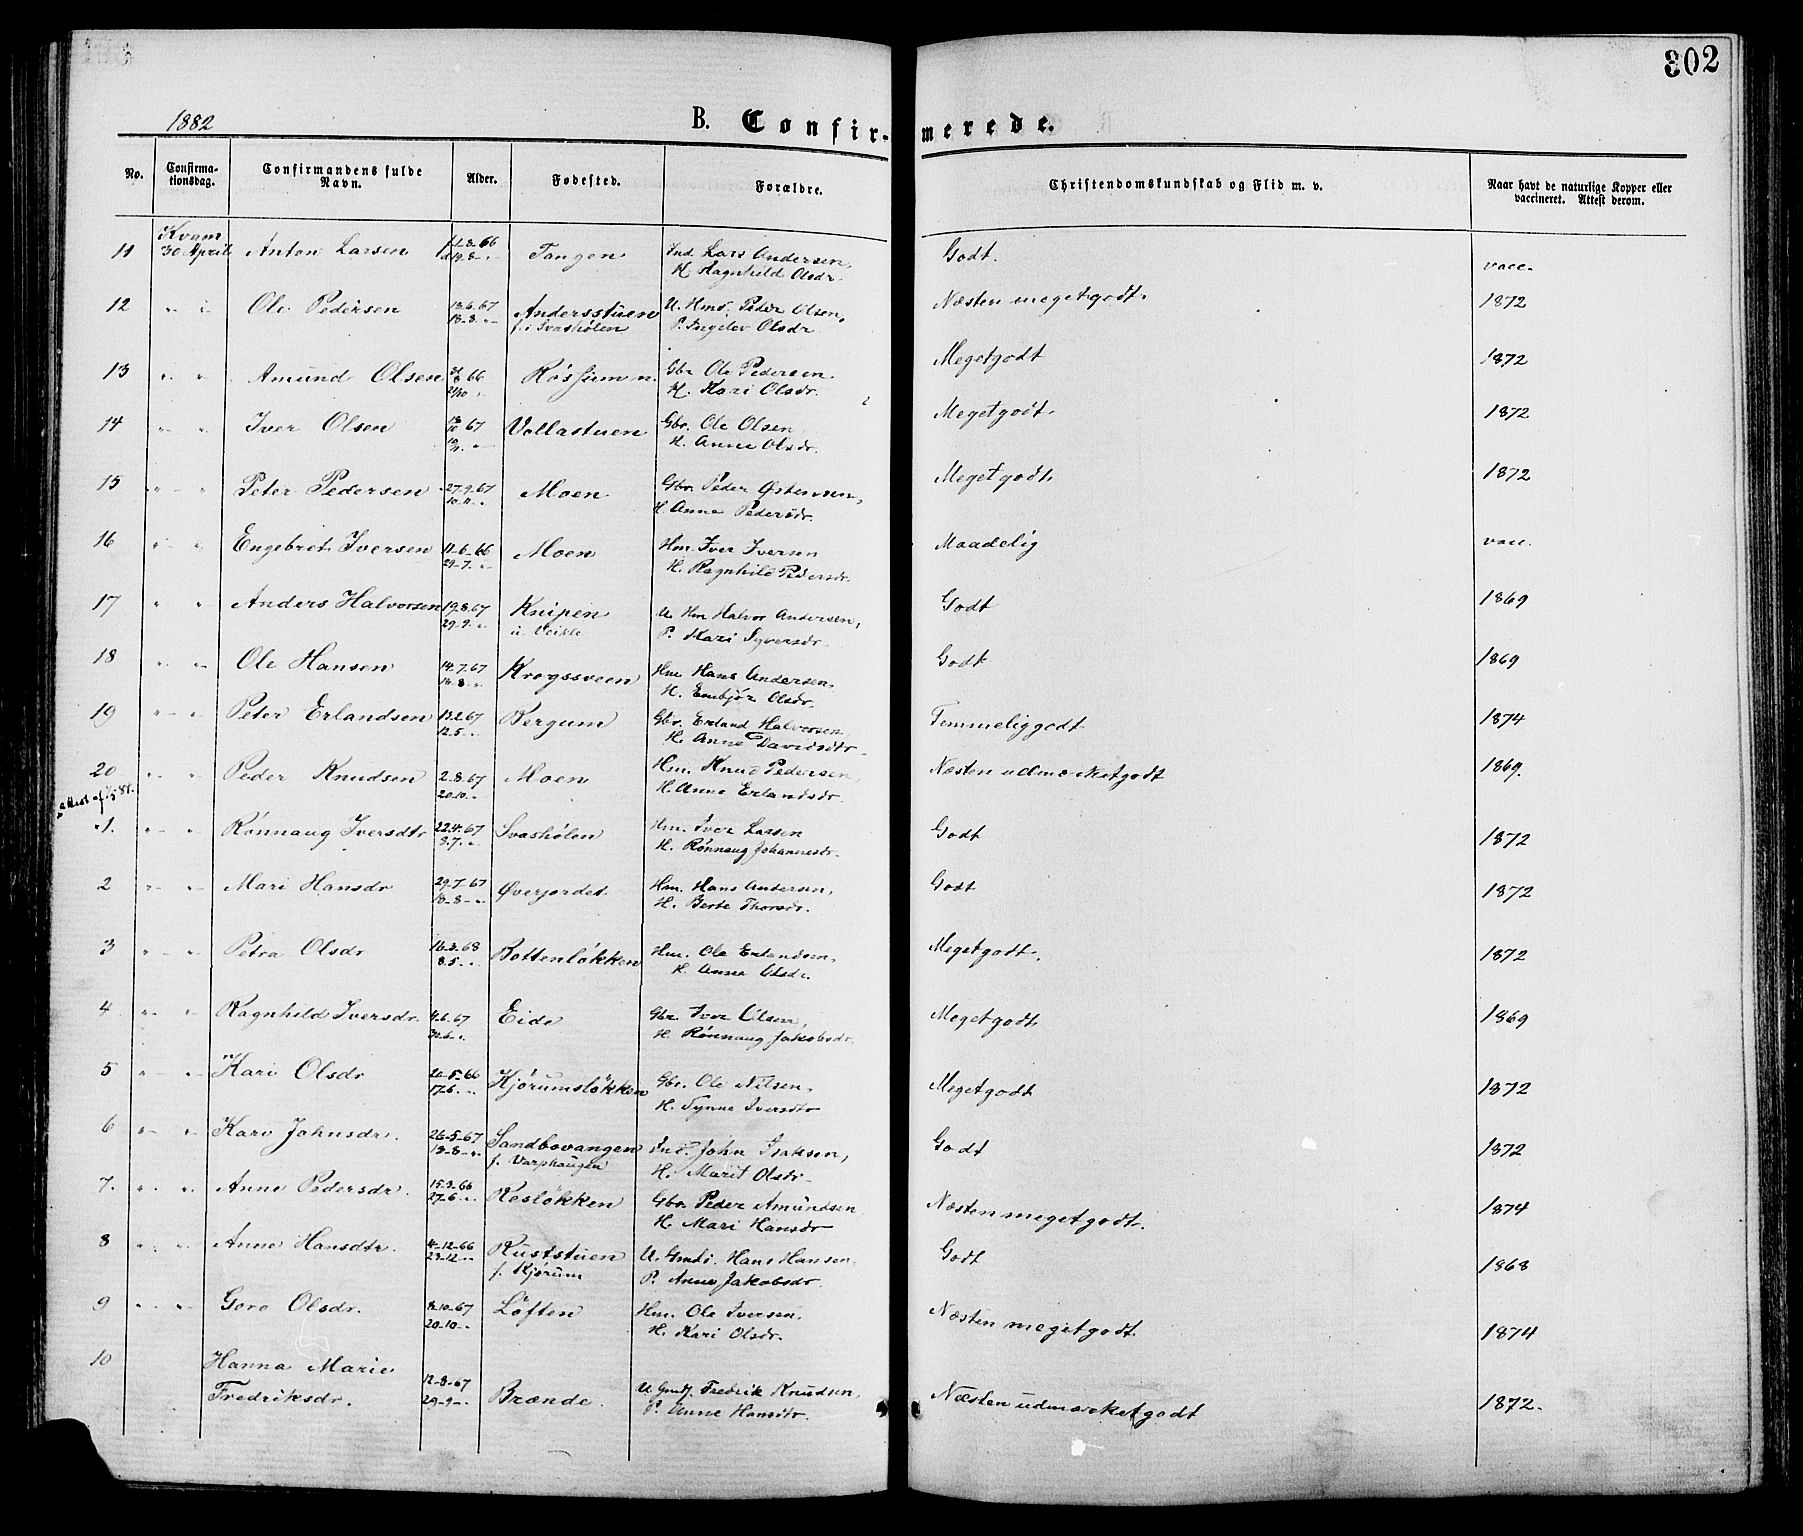 302
1882
B. Confirmerede.
No. Confirmationsdag. Confirmandens fulde Navn. Alder. Fødested. Forældre. Christendomskundskab og Flid m. v. Naar havt de naturlige Kopper eller vaccineret. Attest derom.
Kvam
11 30 April Anton Larsen Tangen Ind Lars Andersen, Godt. vacc.
H. Ragnhild Olsdr.
12 " " Ole Pedersen 13.6.67 Andersstuen U. Hmd. Peder Olsen, Næsten megetgodt. 1872
18-8 " f. i Svashølen P. Ingelev Olsdr
13 " " Amund Olsen 66 Røssum n. Gbr Ole Pedersen Megetgodt 1872
H. Kari Olsdr.
14 " " Iver Olsen 67 Vollastuen Gbr. Ole Olsen Megetgodt. 1872
H. Anne Olsdr.
15 " " Peter Pedersen 27.9.67 Moen Gbr. Peder Østensen, Megetgodt. 1872
10.11. " H Anna Pedersdr.
16 " " Engebret Iversen 11-6-66 Moen Hm. Iver Iversen Maadelig vacc.
29-7. " H. Ragnhild Pedersdr.
17 " " Anders Halvorsen 19.8.67 Knipen U. Hm Halvor Andersen, Godt 1869
29.9. " u. Veikle P. Kari Syversdr.
18 " " Ole Hansen 14.7.67 Krogssveen Hm Hans Andersen, Godt 1869
18-8 " H. Embjør Olsdr.
19 " " Peter Erlandsen 13.2.67 Bergum Gbr. Erland Halvorsen Temmeliggodt 1874
12.5 " H. Anne Davidsdtr
20 " " Peder Knudsen 2-8.67 Moen Hm. Knud Pedersen, Næsten udmærketgodt 1869.
20.10. " H. Anne Erlandsdr.
1. " " Rønnaug Iversdtr 22.4.67 Svashølen Hm. Iver Larsen Godt 1872
8.7. " H. Rønnaug Johannesdr.
2 " " Mari Hansdr 29.7.67 Øverjordet Hm. Hans Andersen, Godt 1872
18-8 " H. Berte Thorsdr.
3 " " Petra Olsdr 16-3.68 Bottenløkken Hm. Ole Erlandsen, Megetgodt. 1872
8.5. " H. Anne Olsdr.
4 " " Ragnhild Iversdr. 4.6.67 Eide Gbr Iver Olsen, Megetgodt 1869
H Rønnaug Jakobsdr.
5 " " Kari Olsdr 20-5-66 Kjørumsløkken Gbr. Ole Nilsen, Megetgodt 1872
17.6. " H. Synne Iversdtr
6 " " Kari Johnsdr. 26-5-67 Sandbovangen Ind John Isaksen, Godt 1872
18-8 " f. Varphaugen H. Marit Olsdr
7. " " Anne Pedersdr. 15.3.66 Rosløkken Gbr. Peder Amundsen Næsten megetgodt. 1874
27.6. " H. Mari Hansdr
8 " " Anne Hansdtr. 4-12-66 Ruststuen U. Gmd. Hans Hansen, Godt 1868
23.12 " f. Kjørum P. Anne Jakobsdr.
9 " " Goro Olsdr. Løften Hm. Ole Iversen, Næsten megetgodt. 1874
20-10 " H. Kari Olsdr.
10 Hanna Marie
Fredriksdr. 12-8-67 Brænde. U. Gmd. Fredrik Knudsen, Næsten udmærketgodt 1872.
29-9 " P. Anne Hansdtr.